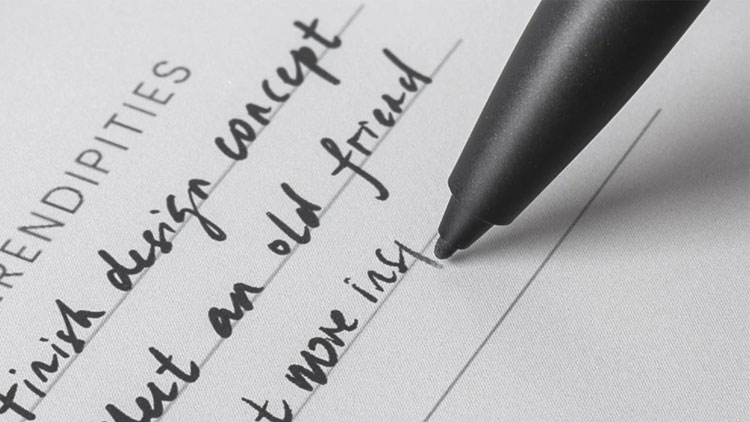 RENDIPITIES
finish design concept
an old friend
more ins